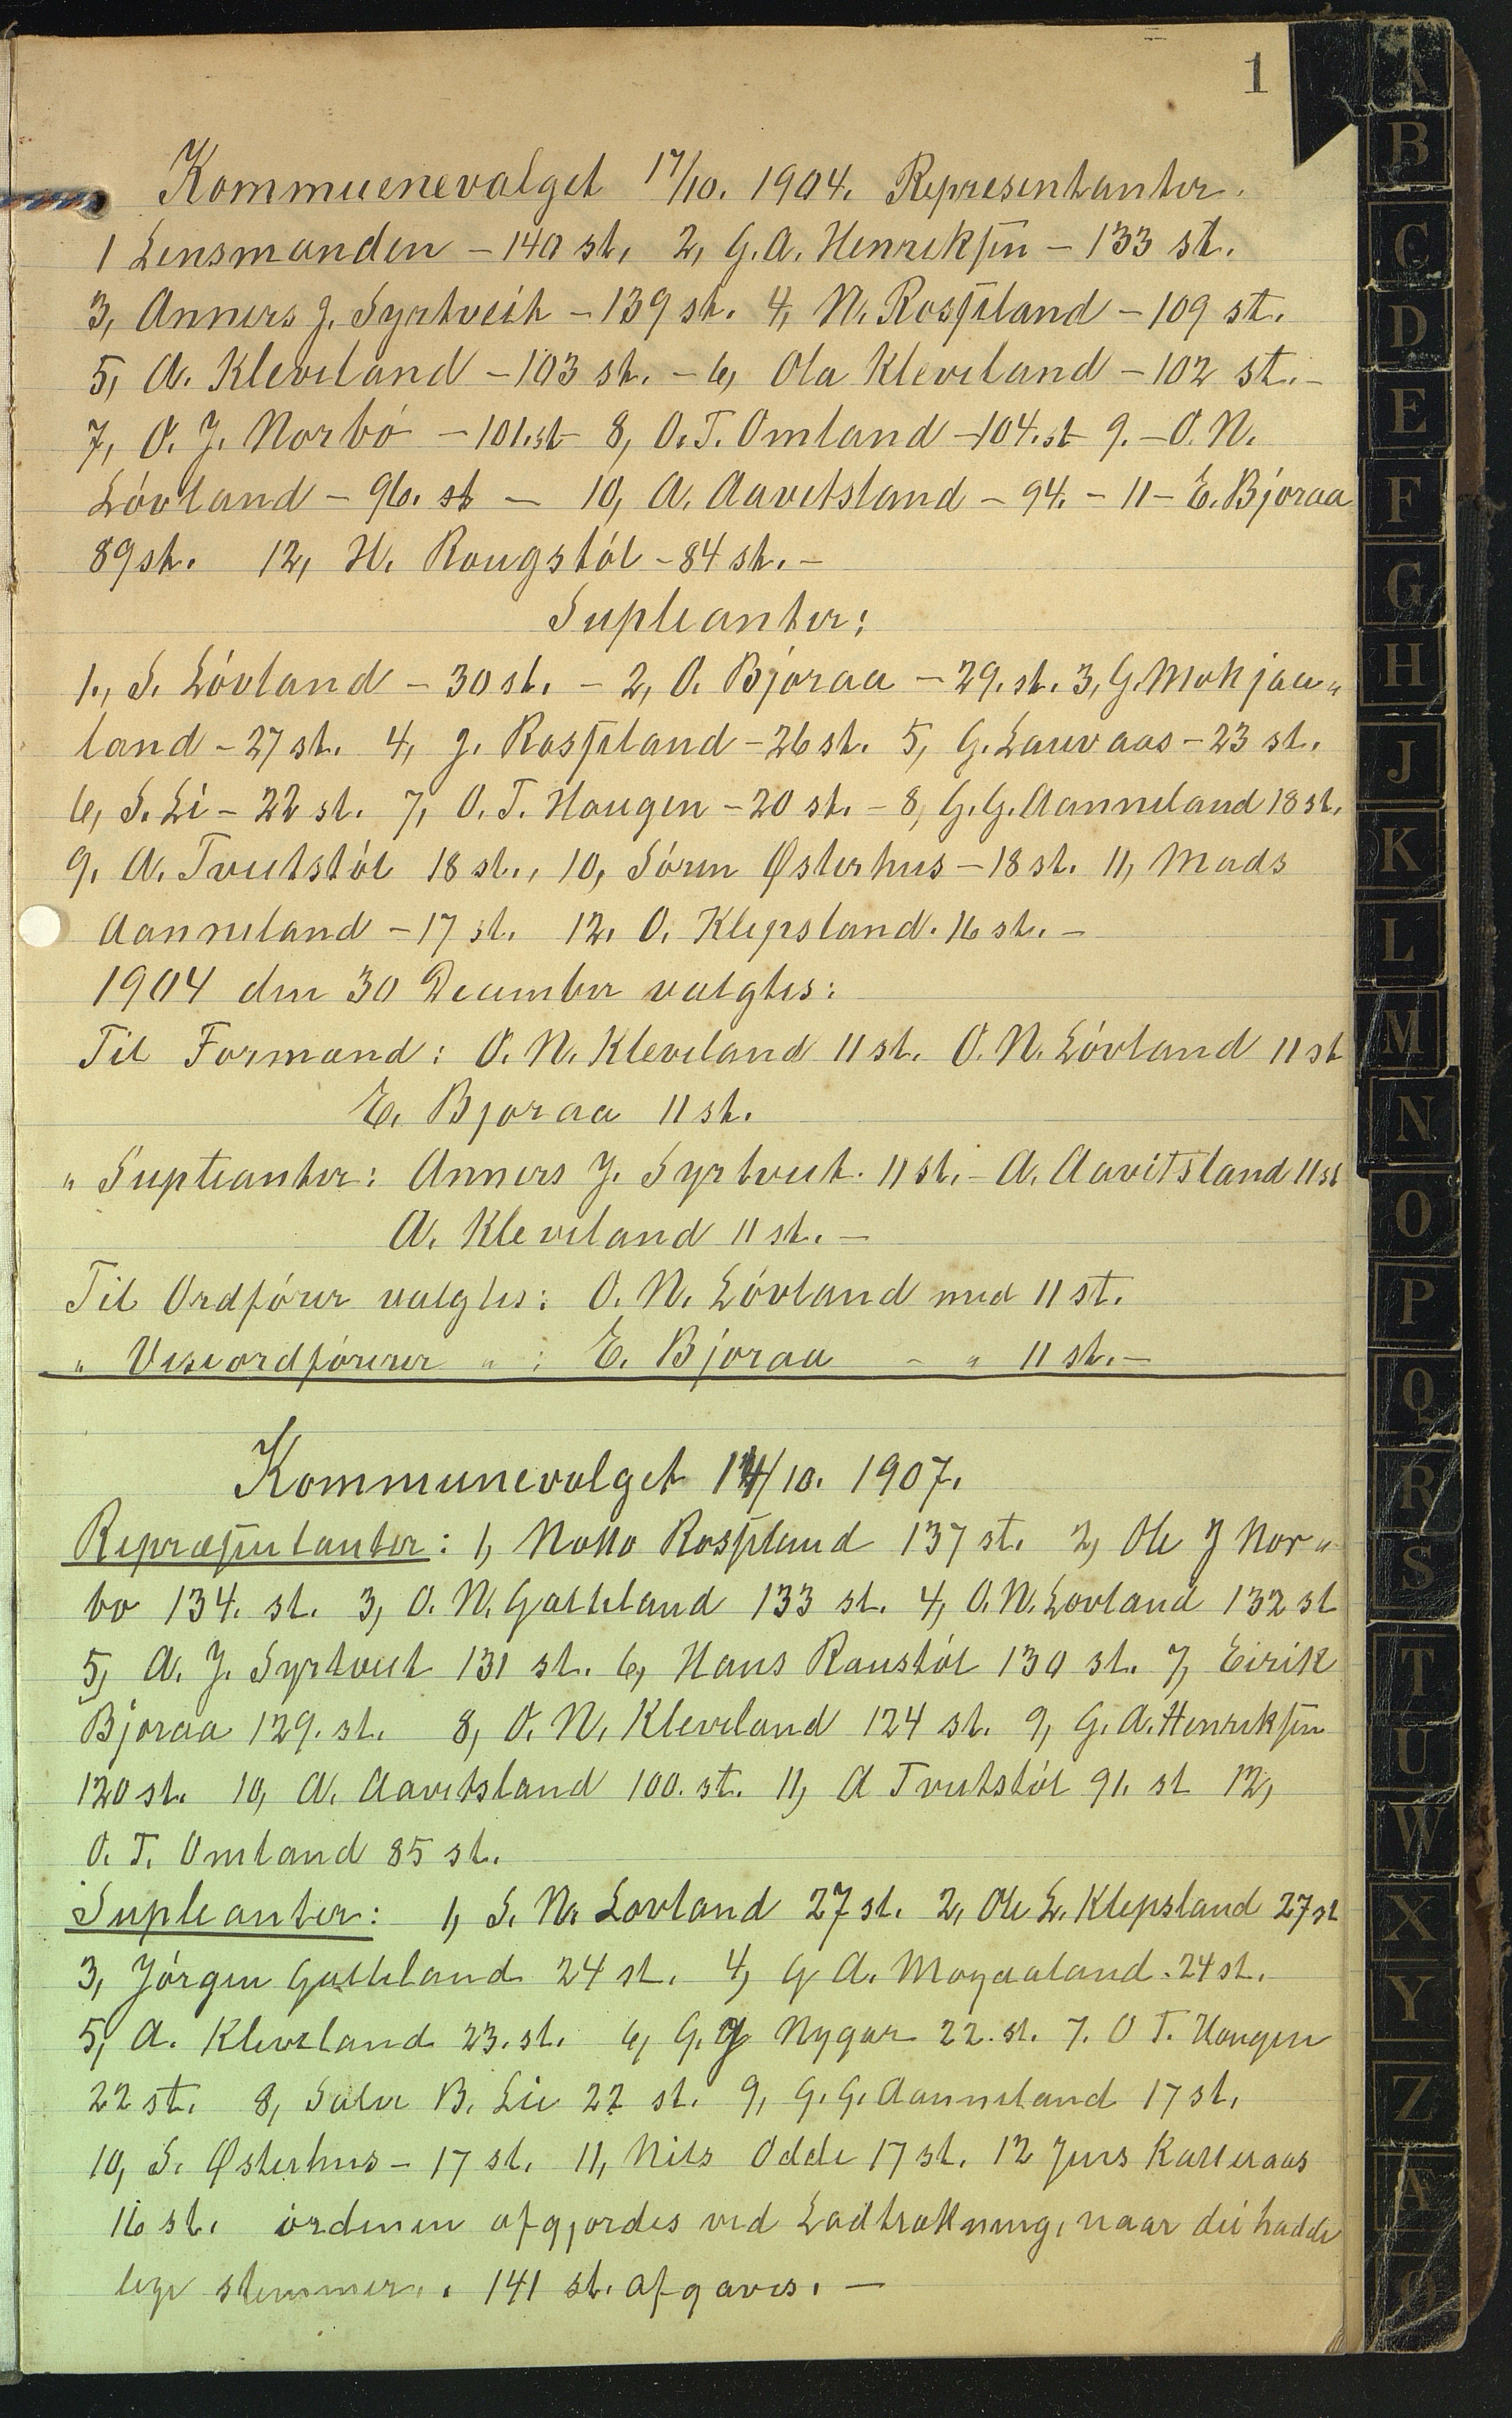 1
Kommuenevalget 17/10. 1904. Representanter.
1 Lensmanden - 140 st. 2, G. A. Henriksen - 133 st.
3, Anners J. Syrtveit - 139 st. 4, N. Rosseland - 109 st.
5, A. Kleveland - 103 st. - 6, Ola Kleveland - 102 st. -
7, O. J. Norbó - 101. st 8, O. T. Omland - 104. st 9. - O. N.
Lóvland - 96. st - 10, A. Aavitsland - 94. - 11 - E. Bjoraa
89 st. 12, H. Rougstól - 84 st. -
Supleanter:
1., S. Lóvland - 30 st. - 2, O. Bjoraa - 29. st. 3, G. Mokjaa„
land - 27 st. 4, J. Rosseland - 26 st. 5, G. Lauvaas - 23 st.
6, S. Li - 22 st. 7, O. T. Haugen - 20 st. - 8, G. G. Aanneland 18 st.
9. A. Tveitstól 18 st., 10, Sóren Østerhus - 18 st. 11, Mads
Aanneland - 17 st. 12. O. Klepsland. 16 st. -
1904 den 30 December valgtes:
Til Formænd: O. N. Kleveland 11 st. O. N. Lóvland 11 st
E. Bjoraa 11 st.
„ Supleanter: Anners J. Syrtveit. 11 st. - A. Aavitsland 11 st
A. Kleveland 11 st. -
Til Ordfórer valgtes: O. N. Lóvland med 11 st.
„ Viseordfórerer „ : E. Bjoraa - „ 11 st. -
Kommunevalget 14/10. 1907.
Repræsentanter: 1, Notto Rosseland 137 st. 2, Ole J Nor„
bo 134. st. 3, O. N. Gatteland 133 st. 4, O. N. Lovland 132 st
5, A. J. Syrtveit 131 st. 6, Hans Raustól 130 st. 7, Eirik
Bjoraa 129. st. 8, O. N. Kleveland 124 st. 9, G. A. Henriksen
120 st. 10, A. Aavitsland 100. st. 11, A Tveitstól 91. st 12,
O. T. Omland 85 st.
Supleanter: 1, S. N. Lovland 27 st. 2, Ole L. Klepsland 27 st
3, Jórgen Gatteland 24 st. 4, G A. Moyaaland. 24 st.
5, A. Kleveland 23. st. 6, G. J Nygar 22. st. 7. O T. Haugen
22 st. 8, Salve B. Lie 22 st. 9, G. G. Aanneland 17 st.
10, S. Østerhus - 17 st. 11, Nils Odde 17 st. 12 Jens Katteraas
16 st. ordenen afgjordes ved Lodtrækning, naar dei hadde
lige stemmer. . 141 st. afgaves. -
A
B
C
D
E
F
G
H
J
K
L
M
N
O
P
Q
R
S
T
U
W
X
Y
Z
Æ
Ø